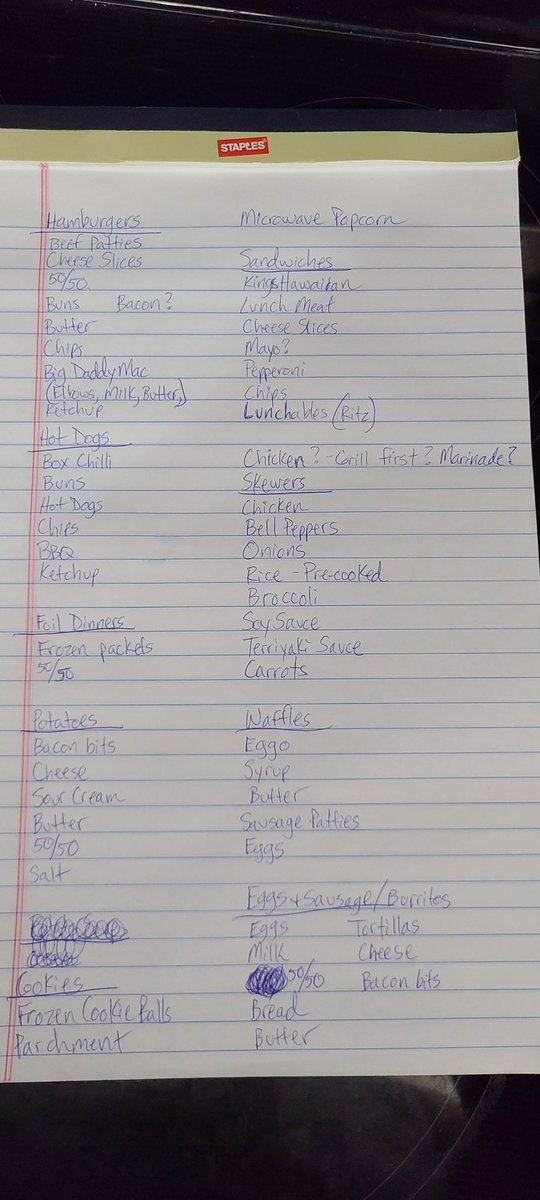 STAPLES
Hamburgers
Beef Patties
Cheese Slices
50/50
Buns Bacon?
Butter
Chips
Big Daddy Mac
(Elbows, Milk, Butter,)
Ketchup
Hot Dogs
Box Chilli
Buns
Hot Dogs
Chips
BBQ
Ketchup
Foil Dinners
Frozen packets
50/50
Potatoes
Bacon bits
Cheese
Sour Cream
Butter
50/50
Salt
Cookies
Frozen Cookie Balls
Parchment
Microwave Popcorn
Sandwiches
Kings Hawaiian
Lunch Meat
Cheese Slices
Mayo?
Pepperoni
Chips
Lunchables (Ritz)
Chicken? - Grill first? Marinade?
Skewers
Chicken
Bell Peppers
Onions
Rice - Pre-cooked
Broccoli
Soy Sauce
Terriyaki Sauce
Carrots
Waffles
Eggo
Syrup
Butter
Sausage Patties
Eggs
Eggs + Sausage/Burritos
Eggs Tortillas
Milk Cheese
50/50 Bacon bits
Bread
Butter